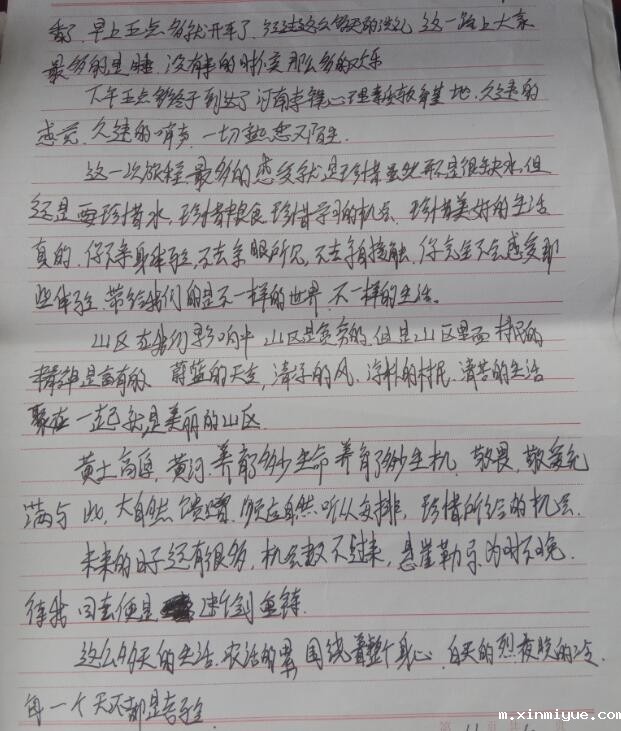 了，早上五点多就开车了，经过这么多天的洗礼 这一路上大家
最多的是睡，没有来的时候那么多的欢乐
下午五点多终于到达了河南李锋心理素质教育基地，久违的
感觉，久违的哨声，一切熟悉又陌生。
这一次旅程，最多的感受就是珍惜虽然不是很缺水，但
还是要珍惜水，珍惜粮食 珍惜学习的机会，珍惜美好的生活
真的，你不亲身体验，不去亲眼所见，不去亲自接触，你完全不会感受那
些体验，带给我们的是不一样的世界，不一样的生活。
山区在我们影响中 山区是贫穷的，但是山区里面 村民的
精神是富有的 蔚蓝的天空，清凉的风，淳朴的村民，清苦的生活
聚在一起就是美丽的山区
黄土高原，黄河，养育多少生命 养育了多少生机，敬畏，敬爱充
满与此，大自然馈赠，顺应自然，听从安排，珍惜所给的机会.
未来的日子还有很多，机会数不过来，悬崖勒马为时不晚.
待我回去便是 断剑重铸.
这么多天的生活，农活的累，围绕着整个身心，白天的烈夜晚的冷，
每一个天不都是考验
m.xinmiyue.com